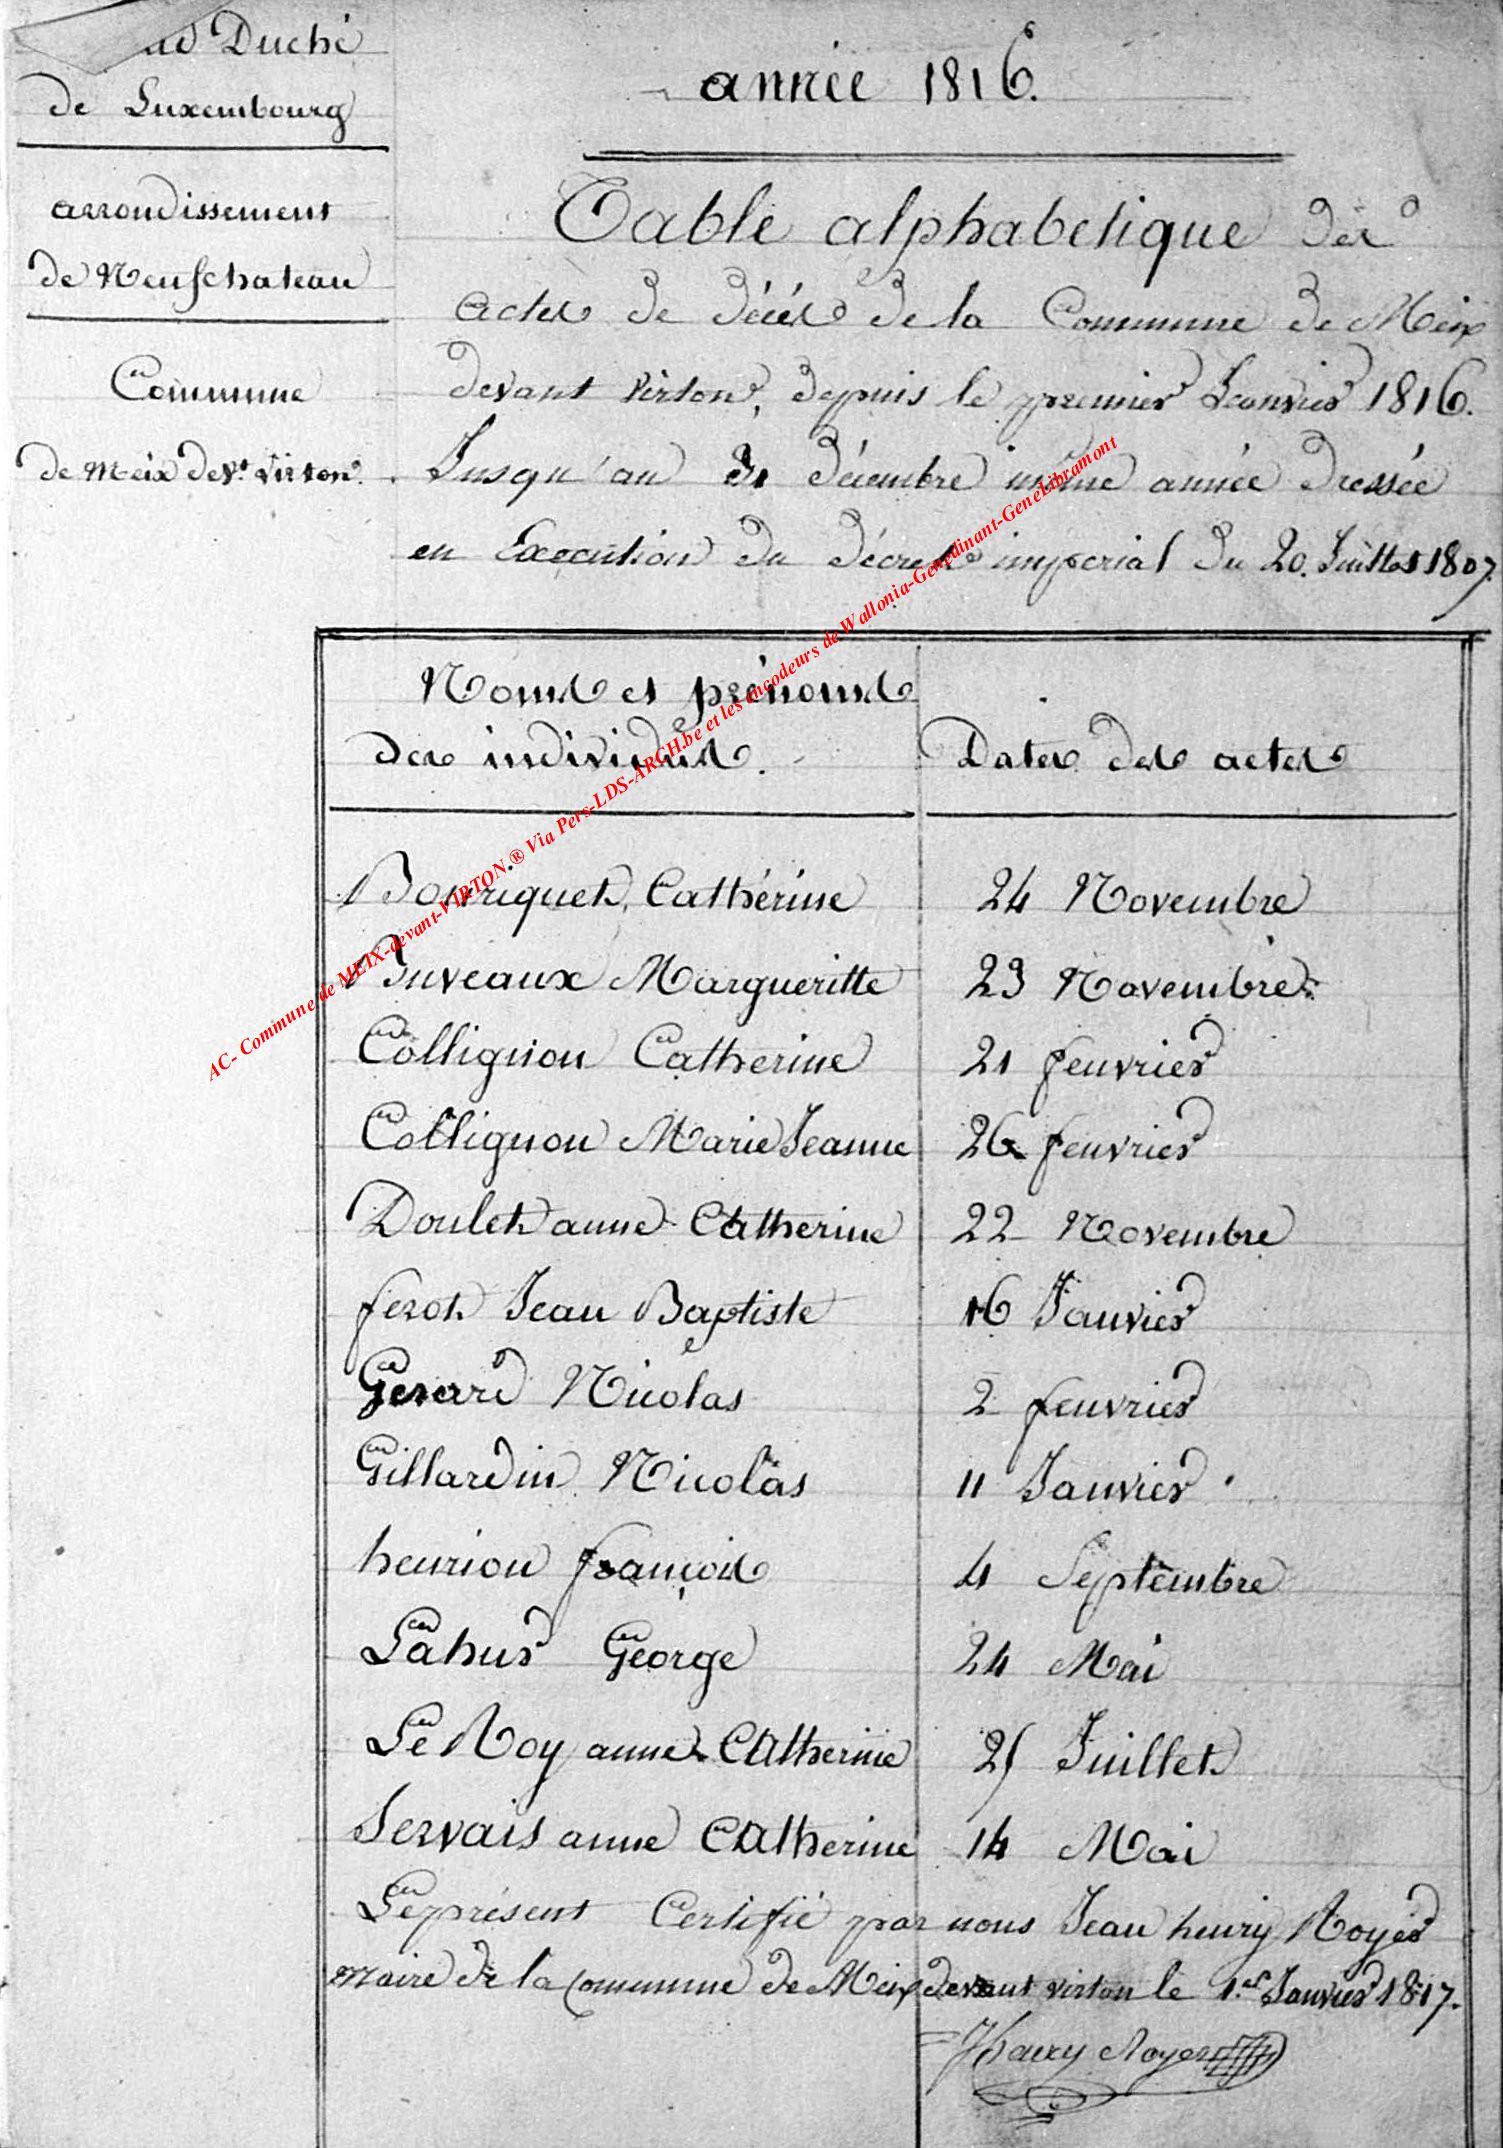 Duché
de Luxembourg
arrondissement
de Neufchateau
Commune
de Meix dev.t Virton.
année 1816.
Table alphabetique des
actes de décés de la Commune de Meix
devant Virton, depuis le premier Janvier 1816.
Jusqu'au 31 décembre même année dressée
en Execution du décret imperial du 20. Juillet 1807.
Noms et prénoms
des individus.
Dates des actes
Bourriquet, Cathérine 24 Novembre
Buveaux Margueritte 23 Novembre
Collignon Catherine 21 feuvrier
Collignon Marie Jeanne 26 feuvrier
Doulet anne Catherine 22 Novembre
ferot Jean Baptiste 16 Janvier
Gerard Nicolas 2 feuvrier
Gillardin Nicolas 11 Janvier
henrion françois 4 Septembre
Lahur George 24 Mai
Le Roy anne Catherine 25 Juillet
Servais anne Catherine 14 Mai
Le présent Certifié par nous Jean henry Royer
maire de la Commune de Meix devant virton le 1.er Janvier 1817.
JHenry Royer
AC- Commune de MEIX-devant-VIRTON.® Via Pers-LDS-ARCH.be et les encodeurs de Wallonia-Genedinant-GeneLibramont